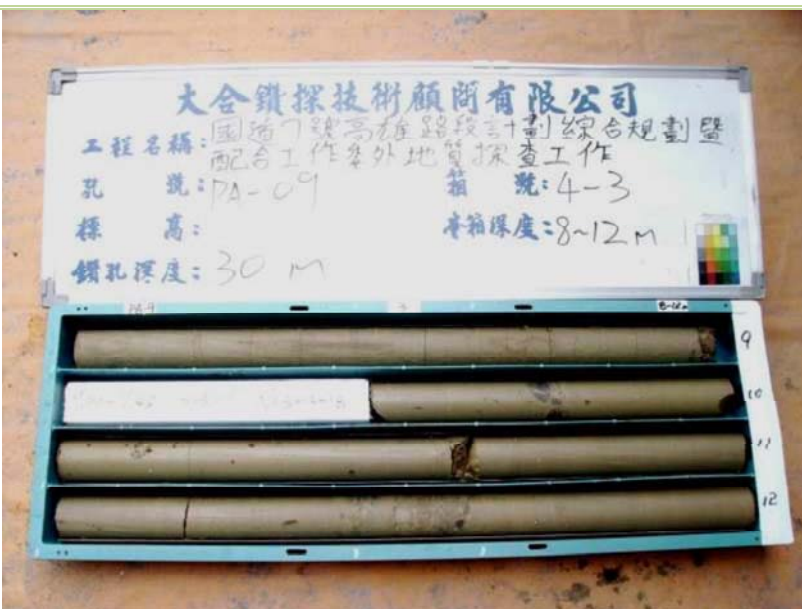 大合鑽探技術顧問有限公司
工程名稱：國道7號高雄路段計劃綜合規劃暨
配合工作委外地質探查工作
孔 號：PA-09 箱 號：4-3
標 高： 本箱深度：8~12 m
鑽孔深度：30 m
PA-9 3
9
10
11
12